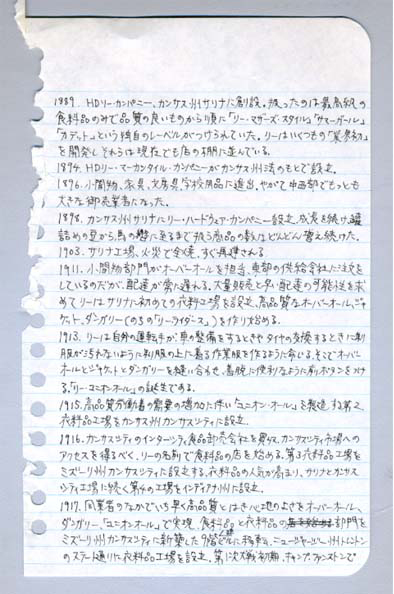 1889. HDリー・カンパニー、カンザス州サリナに創設。扱ったのは最高級の
食料品のみで品質の良いものから順に「リー・マザーズ・スタイル」「サマーガール」
「カデット」という独自のレーベルがつけられていた。リーはいくつもの「業界初」
を開発しそれらは現在でも店の棚に並んでいる。
1894. HDリー・マーカンタイル・カンパニーがカンザス州法のもとで設定。
1896. 小間物、家具、文房具、学校用品に進出。やがて中西部でもっとも
大きな卸売業者になった。
1898. カンザス州サリナにリー・ハードウェア・カンパニー設定。成長を続け、
詰めの豆から馬の鞍に至るまで扱う商品の数はどんどん増え続けた。
1903. サリナ工場、火災で全焼。すぐ再建される。
1911. 小間物部門がオーバーオールを担当、東部の供給会社に注文を
しているのだが、配達が常に遅れる。大量販売と早い配達の可能性を求
めてリーはサリナに初めての衣料工場を設定、高品質なオーバーオール、ジャ
ケット、ダンガリー(のちの「リーライダース」)を作り始める。
1913. リーは自分の運転手が車の整備をするときやタイヤの交換するときに制
服がよごれないように制服の上に着る作業服を作るように命じる。そこでオーバー
オールとジャケットとダンガリーを縫い合わせ、着脱に便利なように前ボタンをかけ
る。「リー・ユニオンオール」の誕生である。
1915. 高品質労働着の需要の増加に伴い「ユニオン・オール」を製造する第2
衣料品工場をカンザス州カンザスシティに設立。
1916. カンザスシティのインターシティ食品卸売会社を買収。カンザスシティ市場への
アクセスを得るべく、リーの名前で食料品の店を始める。第3衣料品工場を
ミズーリ州カンザスシティに設定する。衣料品の人気が高まり、サリナとカンザス
シティ工場に続く第4の工場をインディアナ州に設定。
1917. 同業者のなかでいち早く高品質とはき心地のよさをオーバーオール、
ダンガリー、「ユニオンオール」で実現。食料品と衣料品の部門を
ミズーリ州カンザスシティに新築した9階ビルに移転。ニュージャージー州トレントン
のステート通りに衣料品工場を設定。第1次大戦初期、キャンプ・ファンストンで